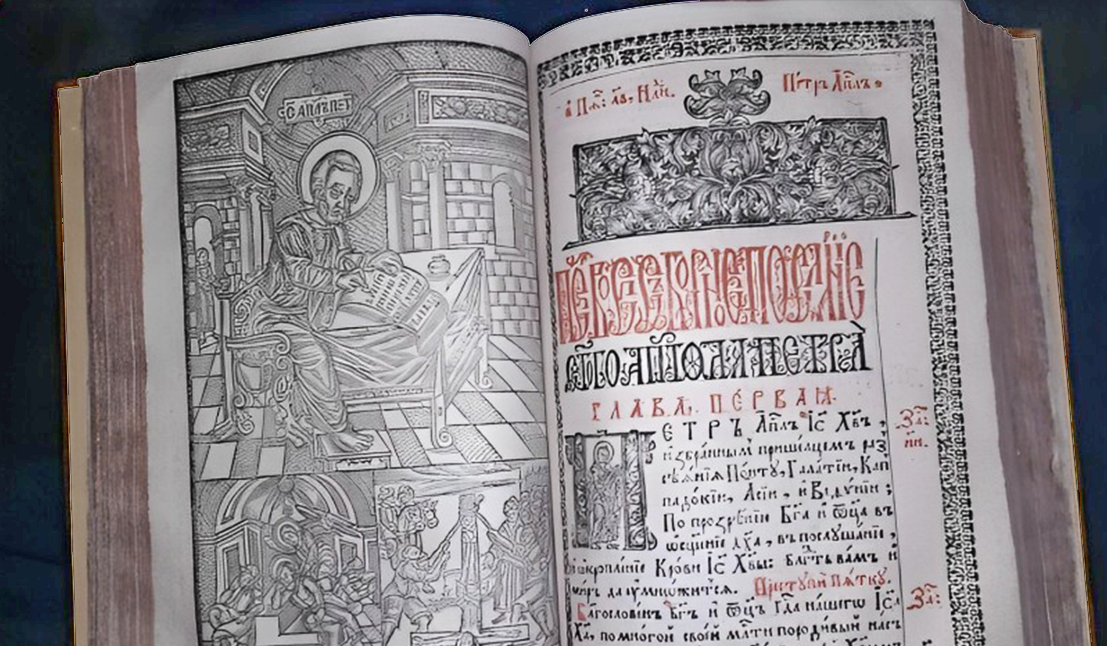 С҃ АПЛЪ ПЕТ
Петръ Апⷭ҇лъ.
ПЕРВОЕ СОБОРНОЕ ПОСЛАНІЕ
СТ҃ГО АПⷭ҇ТОЛА ПЕТРА̀
ГЛАВА̀, ПЕ́РВАѦ.
ПЕТРЪ А҆пⷭ҇лъ І҆с҃ Хв҃ъ,
и҆збра̑ннымъ прише́лцемъ раз
сѣѧ́нїѧ По́нту, Гала́тїи, Кап
падо́кїи, А҆сі́и, и҆ Виѳѵ́нїи;
По прозрѣ́нїю Бг҃а и҆ ѻ҆ц҃а въ
ѡ҆сщ҃е́нїе дх҃а, въ послꙋша́нїе,
и҆ кропле́нїе Кро́ви І҆с҃ Хв҃ы: блгⷣть ва́мъ и҆
ми́ръ да ᲂу҆мно́житсѧ.
Благослове́нъ Бг҃ъ и҆ ѻ҆ц҃ъ гдⷭ҇а на́шегѡ І҆с҃а
Хⷭ҇а̀, по мно́гой свое́й млⷭ҇ти породи́вый на́съ
За҃: